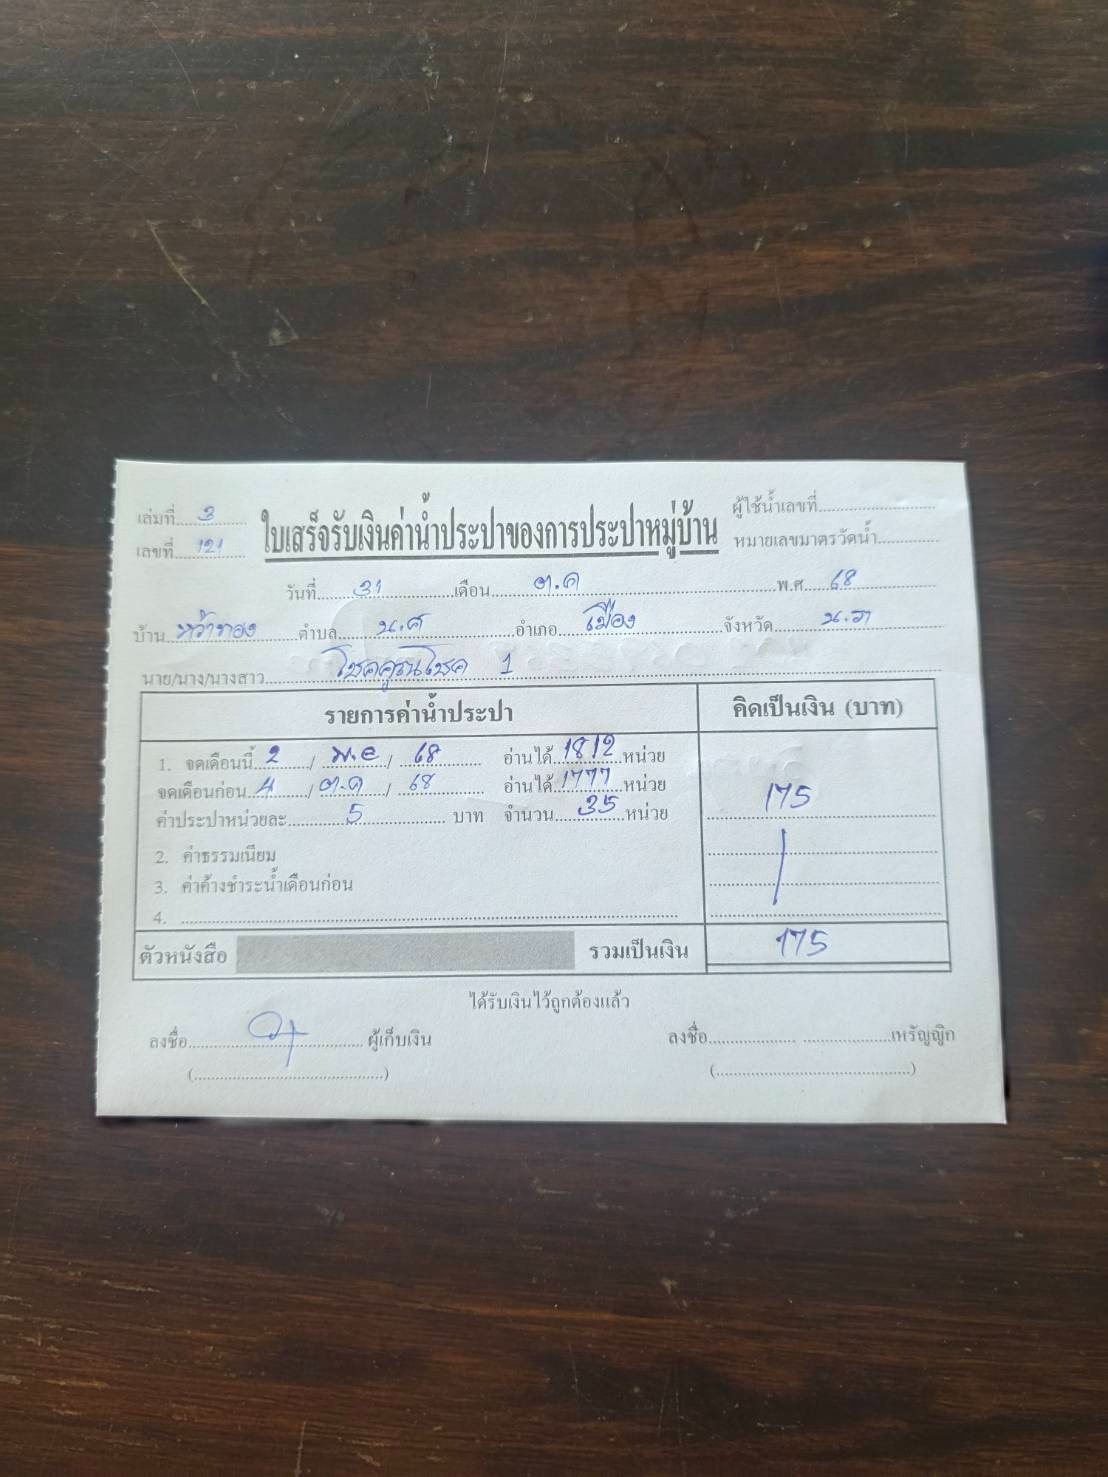 เล่มที่ 3 ใบเสร็จรับเงินค่าน้ำประปาของการประปาหมู่บ้าน ผู้ใช้น้ำเลขที่
เลขที่ 121 หมายเลขมาตรวัดน้ำ
วันที่ 31 เดือน ต.ค พ.ศ. 68
บ้าน หว้าทอง ตำบล น.ศ อำเภอ เมือง จังหวัด
นาย/นาง/นางสาว โชคคูณโชค 1
รายการค่าน้ำประปา คิดเป็นเงิน (บาท)
1. จดเดือนนี้ 2 / พ.ย / 68 อ่านได้ 1812 หน่วย
จดเดือนก่อน 4 / ต.ค / 68 อ่านได้ 1777 หน่วย 175
ค่าประปาหน่วยละ 5 บาท จำนวน 35 หน่วย
2. ค่าธรรมเนียม
3. ค่าค้างชำระน้ำเดือนก่อน
4.
ตัวหนังสือ รวมเป็นเงิน 175
ได้รับเงินไว้ถูกต้องแล้ว
ลงชื่อ ผู้เก็บเงิน ลงชื่อ เหรัญญิก
(....................) (....................)